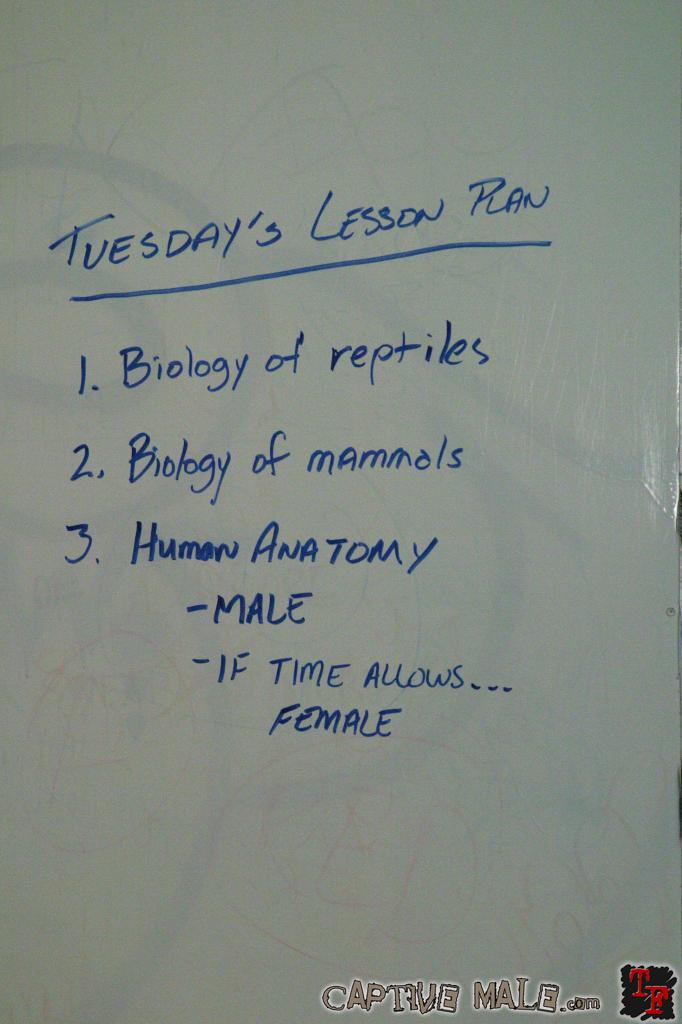 TUESDAY'S LESSON PLAN
1. Biology of reptiles
2. Biology of mammals
3. HUMAN ANATOMY
- MALE
- IF TIME ALLOWS...
FEMALE
CAPTIVE MALE.com TF